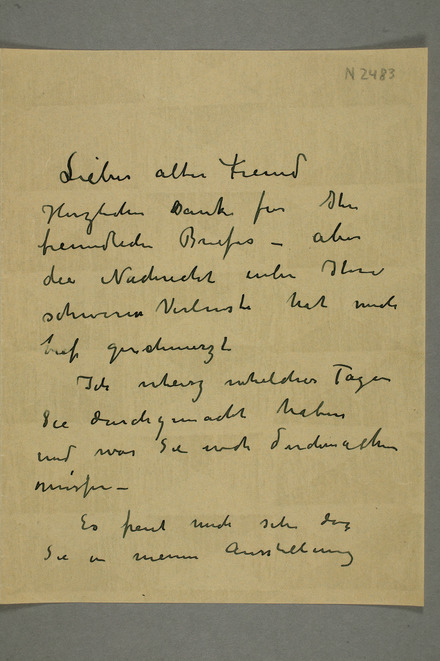 N 2483
Lieber alter Freund
Herzlichen Dank für Ihr
freundliches Briefes – aber
die Nachricht über Ihre
schweren Verluste hat mich
tief geschmerzt
Ich Tage
Sie durchgemacht haben
und was Sie noch durchmachen
müssen –
Es freut mich sehr daß
Sie in meiner Ausstellung